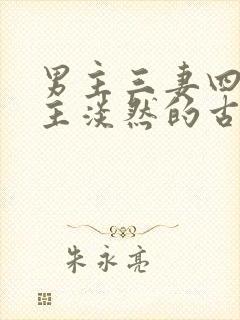 男主三妻四
主淡然的古
朱永亮